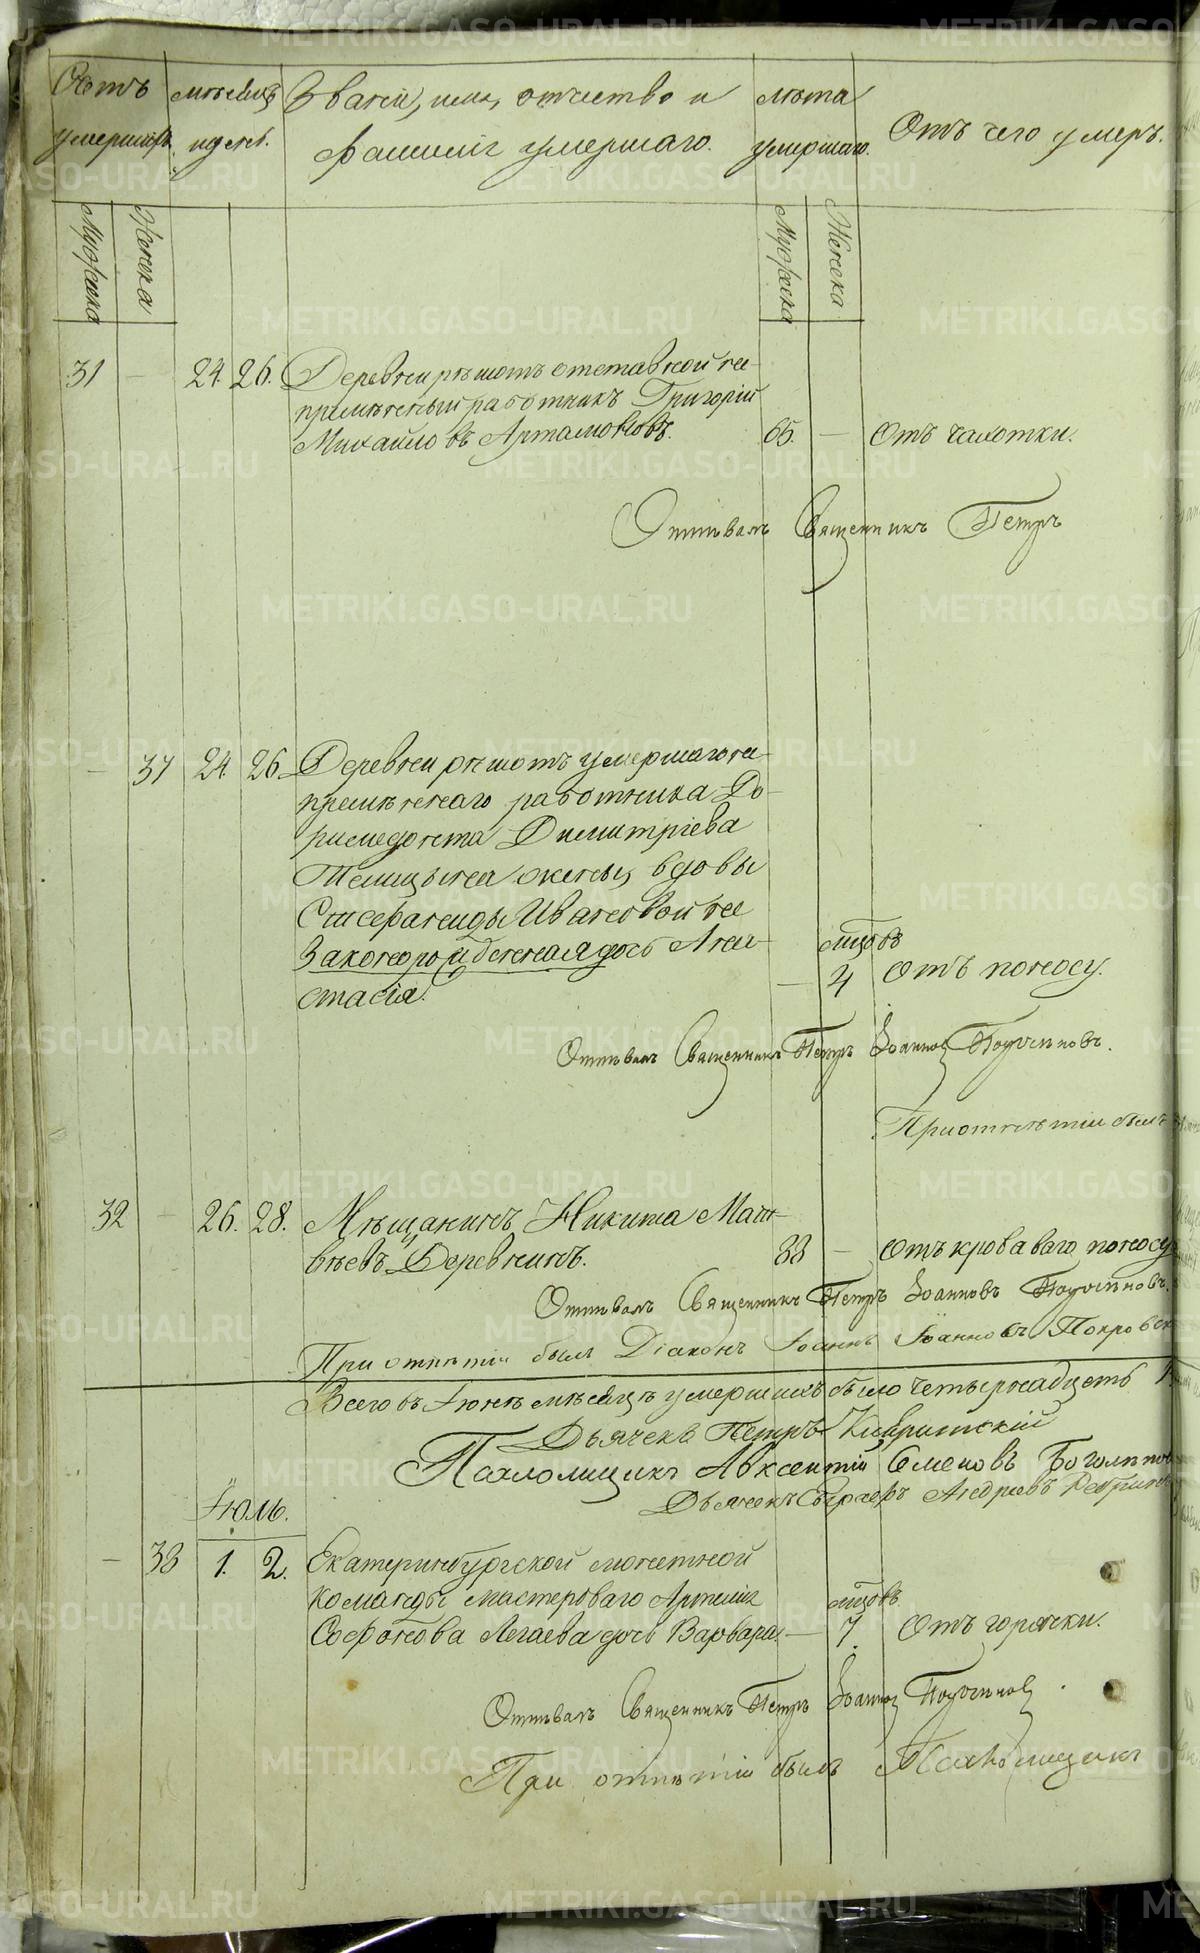 Счетъ умершихъ
мѣсяцъ и день.
Званіе, имя, отчество и
фамилія умершаго.
лѣта умершаго.
Отъ чего умеръ.
Мужеска
Женска
Мужеска
Женска
31 — 24. 26. Деревни рѣшотъ отставной не-
премѣнный работникъ Григорій
Михайловъ Артамоновъ. 65. — Отъ чахотки.
Отпѣвалъ Священникъ Петръ
— 37 24. 26. Деревни рѣшотъ умершаго не-
премѣннаго работника До-
римедонта Димитріева
жены, вдовы
Ивановой не
законорожденная дочь Ана-
стасія.
— мѣсцовъ 4 отъ поносу.
Отпѣвалъ Священникъ Петръ Іоанновъ
При отпѣтіи былъ
32 — 26. 28. Мѣщанинъ Никита Мат-
вѣевъ Деревнинъ. 33 — отъ кроваваго поносу
Отпѣвалъ Священникъ Петръ Іоанновъ
При отпѣтіи былъ Діаконъ Іоаннъ Іоанновъ Покровск
Всего въ Іюнѣ мѣсяцѣ умершихъ было четырнадцеть
Дьячекъ Петръ
Псаломщикъ Авксентій Семеновъ
Дьячекъ Андреевъ
Іюль.
— 38 1. 2. Екатеринбургской монетной
команды мастероваго Артемія
Софонова дочь Варвара. — мѣсцовъ 7. Отъ горячки.
Отпѣвалъ Священникъ Петръ Іоанновъ
При отпѣтіи былъ Псаломщикъ
METRIKI.GASO-URAL.RU